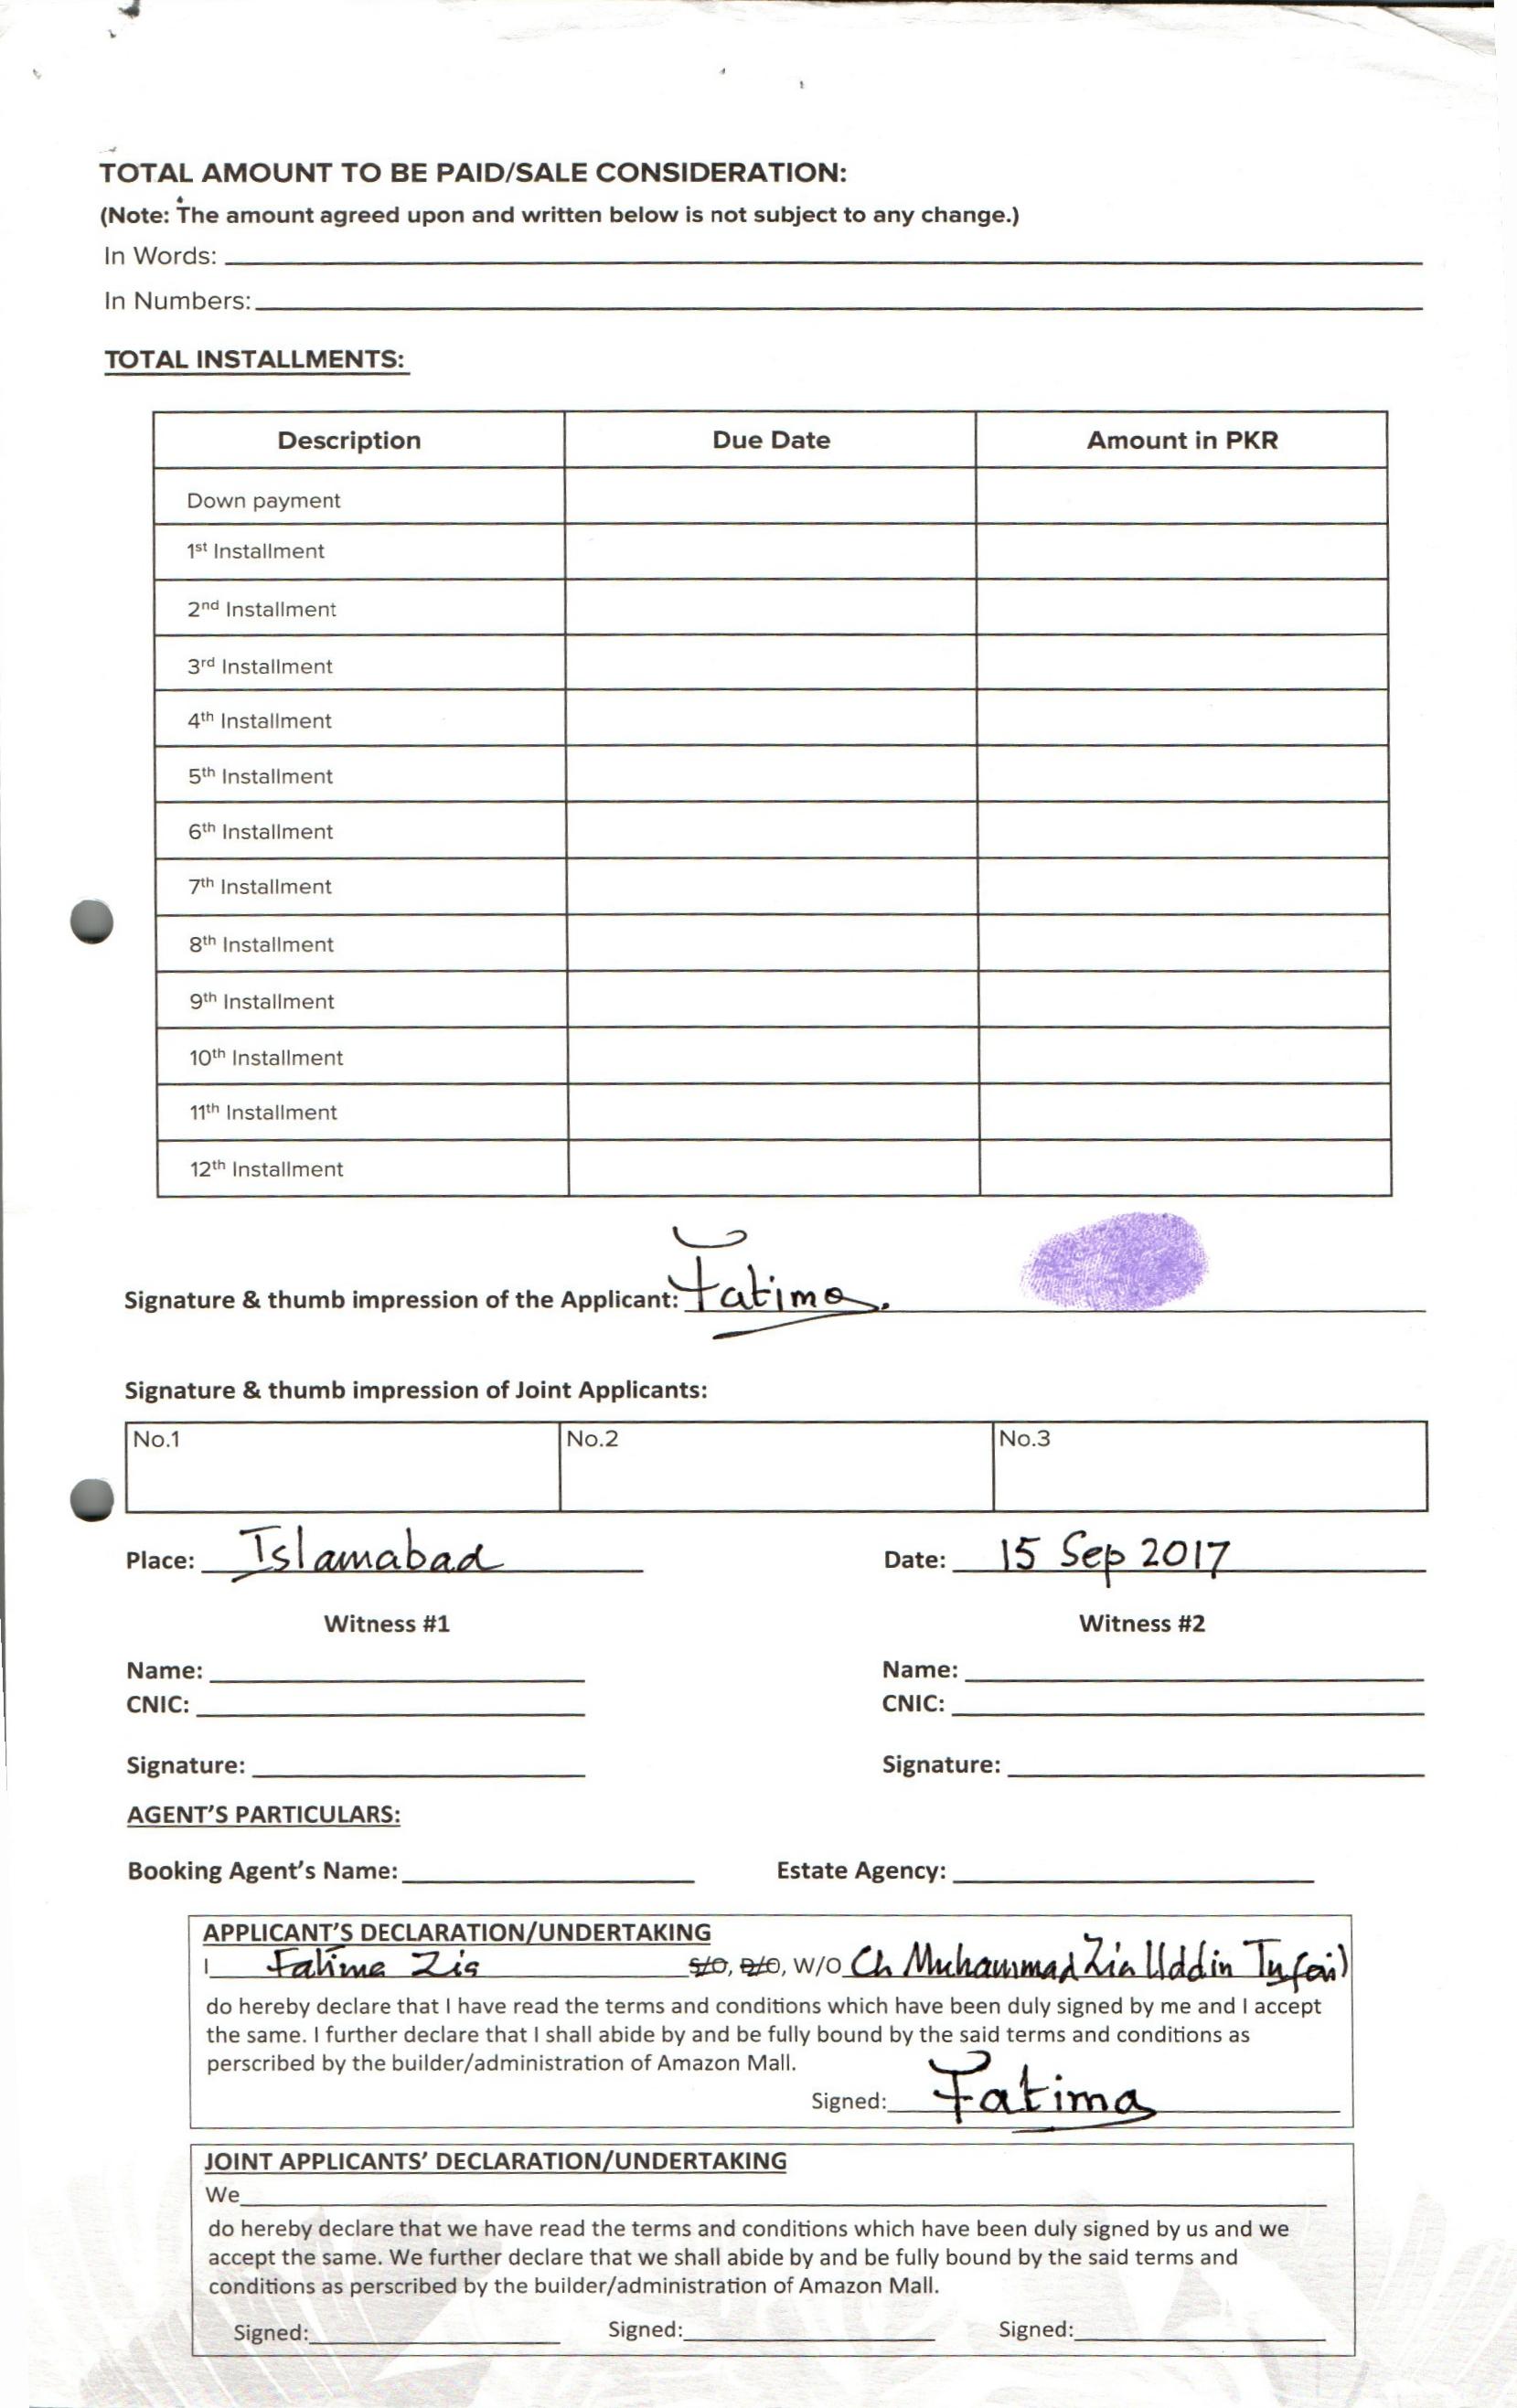 TOTAL AMOUNT TO BE PAID/SALE CONSIDERATION:
(Note: The amount agreed upon and written below is not subject to any change.)
In Words:
In Numbers:
TOTAL INSTALLMENTS:
Description Due Date Amount in PKR
Down payment
1st Installment
2nd Installment
3rd Installment
4th Installment
5th Installment
6th Installment
7th Installment
8th Installment
9th Installment
10th Installment
11th Installment
12th Installment
Signature & thumb impression of the Applicant: Fatima.
Signature & thumb impression of Joint Applicants:
No.1 No.2 No.3
Place: Islamabad Date: 15 Sep 2017
Witness #1 Witness #2
Name: Name:
CNIC: CNIC:
Signature: Signature:
AGENT'S PARTICULARS:
Booking Agent's Name: Estate Agency:
APPLICANT'S DECLARATION/UNDERTAKING
I Fatima Zia S/O, D/O, W/O Ch Muhammad Zia Uddin Tufail
do hereby declare that I have read the terms and conditions which have been duly signed by me and I accept
the same. I further declare that I shall abide by and be fully bound by the said terms and conditions as
perscribed by the builder/administration of Amazon Mall.
Signed: Fatima
JOINT APPLICANTS' DECLARATION/UNDERTAKING
We
do hereby declare that we have read the terms and conditions which have been duly signed by us and we
accept the same. We further declare that we shall abide by and be fully bound by the said terms and
conditions as perscribed by the builder/administration of Amazon Mall.
Signed: Signed: Signed: